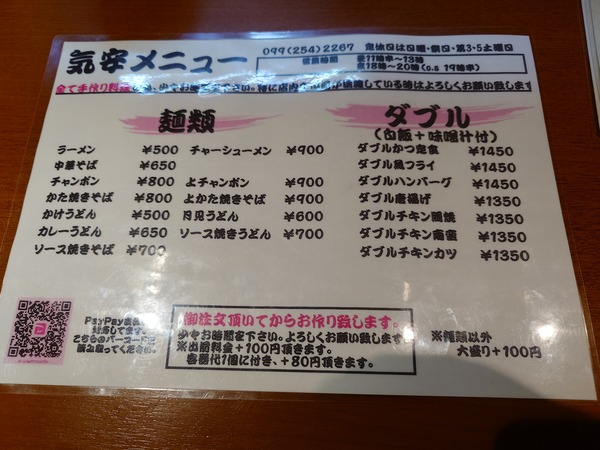 気安メニュー
099(254)2267 定休日は日曜・祭日・第3・5土曜日
営業時間 昼11時半~13時
夜18時~20時(o.s 19時半)
全て手作り料理 下さい。特に店内 している時はよろしくお願い致します
麺類
ラーメン ¥500 チャーシューメン ¥900
中華そば ¥650
チャンポン ¥800 上チャンポン ¥900
かた焼きそば ¥800 上かた焼きそば ¥900
かけうどん ¥500 月見うどん ¥600
カレーうどん ¥650 ソース焼きうどん ¥700
ソース焼きそば ¥700
ダブル
(白飯+味噌汁付)
ダブルかつ定食 ¥1450
ダブル魚フライ ¥1450
ダブルハンバーグ ¥1450
ダブル唐揚げ ¥1350
ダブルチキン照焼 ¥1350
ダブルチキン南蛮 ¥1350
ダブルチキンカツ ¥1350
PayPay
対応してます。
こちらのバーコードを
読み取ってください。
御注文頂いてからお作り致します。
少々お時間を下さい。よろしくお願い致します
※出前料金+100円頂きます。
容器代1個に付き、+80円頂きます。
※麺類以外
大盛り+100円